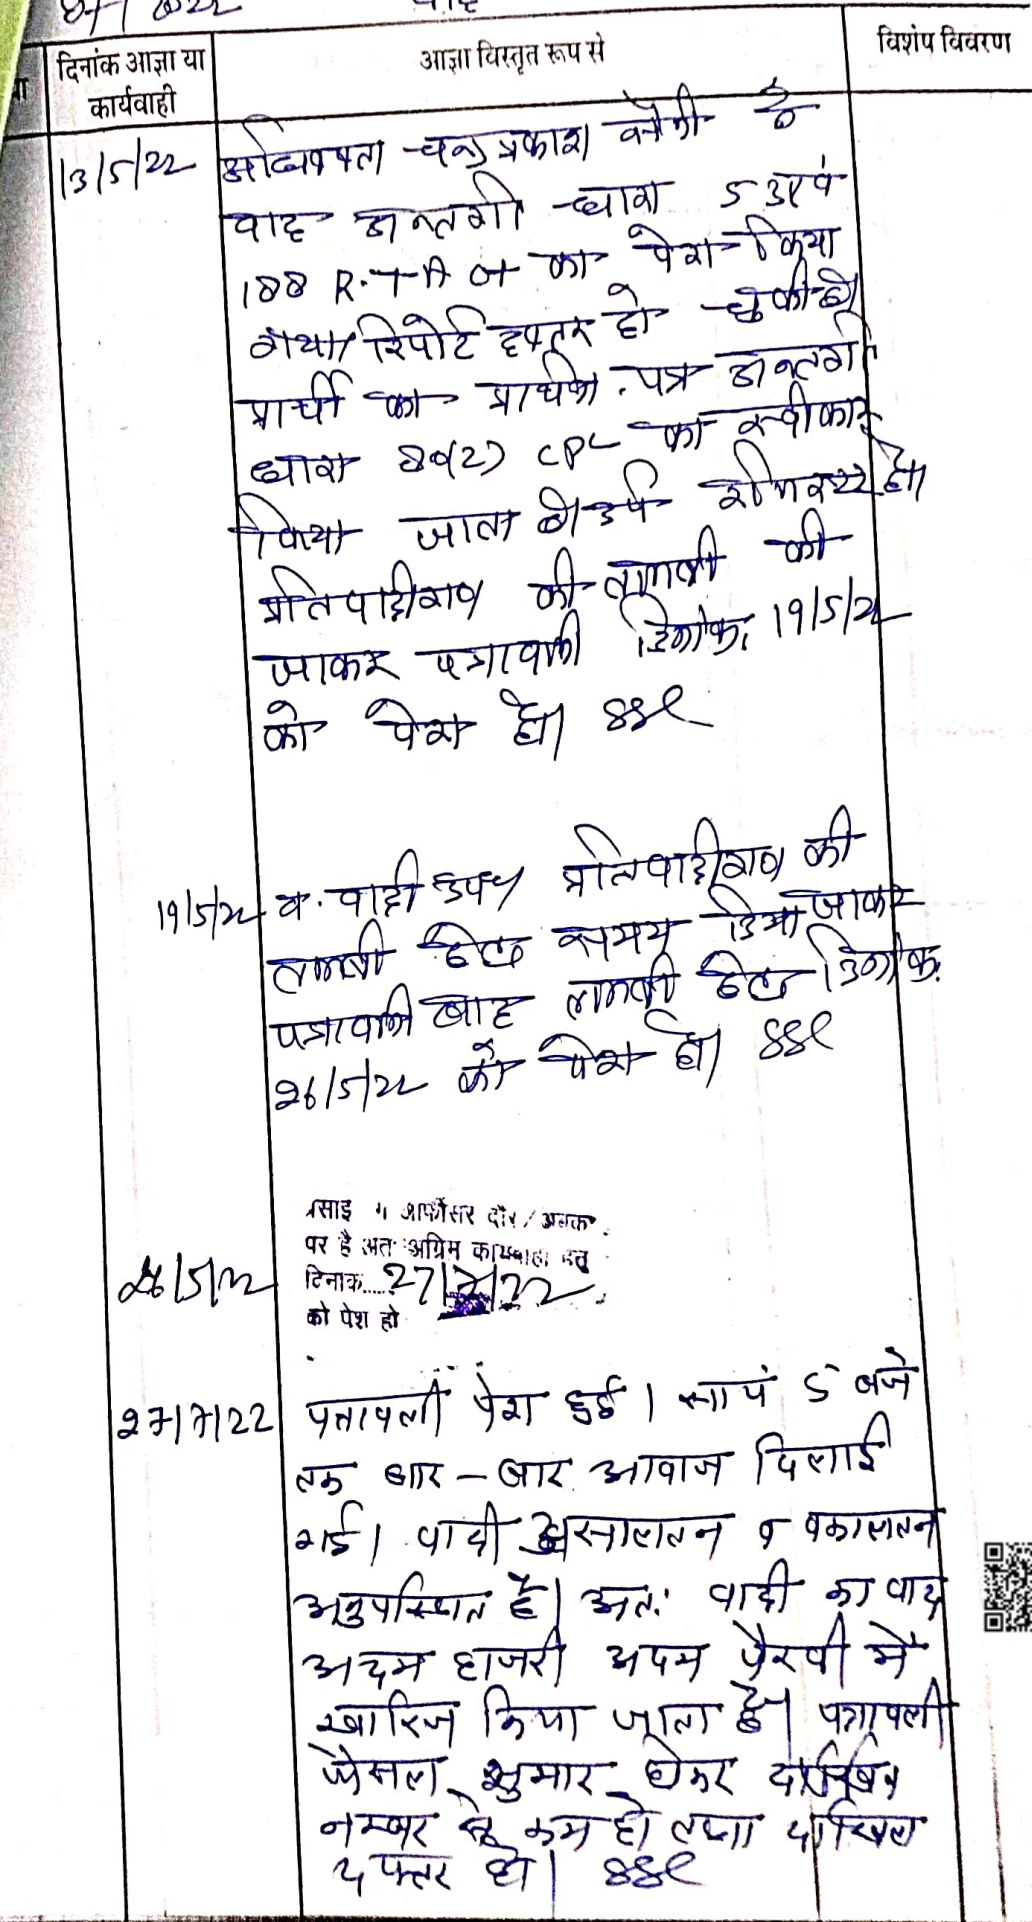 दिनांक आज्ञा या
कार्यवाही
आज्ञा विस्तृत रूप से
विशेष विवरण
13/5/22 अधिवक्ता चन्द्रप्रकाश ने
वाद अन्तर्गत धारा 5 एवं
188 R.T.A का पेश किया
गया। रिपोर्ट दफ्तर हो चुकी है।
प्रार्थी का प्रार्थना पत्र अन्तर्गत
धारा 80(2) CPC का स्वीकार
किया जाता है। दर्ज रजिस्टर हो।
प्रतिवादीगण की तलबी की
जाकर पत्रावली दिनांक 19/5/22
को पेश हो।
19/5/22 व. वादी उप। प्रतिवादीगण की
तलबी हेतु समय दिया जाकर
पत्रावली बाद तलबी हेतु दिनांक
26/5/22 को पेश हो।
पर है अतः अग्रिम कार्यवाही हेतु
26/5/22 दिनांक.....27/7/22
को पेश हो
27/7/22 पत्रावली पेश हुई। सायं 5 बजे
तक बार-बार आवाज दिलाई
गई। वादी असालतन व वकालतन
अनुपस्थित है। अतः वादी का वाद
अदम हाजरी अदम पैरवी में
खारिज किया जाता है। पत्रावली
फैसल शुमार होकर
नम्बर से कम हो तथा दाखिल
दफ्तर हो।